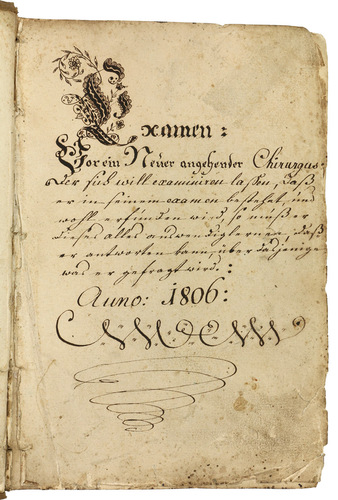 Examen:
Vor ein Neuer angehender Chirurgus:
der sich will examiniren lassen, daß
er in seinem examen bestehet, und
wohl erfunden wird, so muß er
dieses alles auswendig lernen, daß
er antworten kann, über dasjenige
was er gefragt wird:
Anno: 1806: